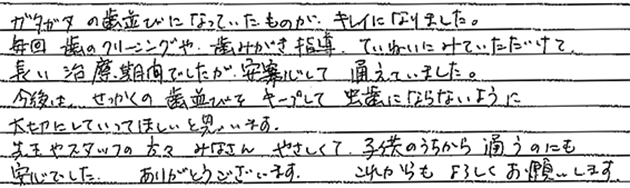 ガタガタの歯並びになっていたものが、キレイになりました。
毎回 歯のクリーニングや、歯みがき指導、ていねいにみていただけて、
長い治療期間でしたが、安心して 通えていました。
今後は、せっかくの歯並びを キープして 虫歯にならないように
大切にしていってほしいと思います。
先生やスタッフの方々 みなさん やさしくて、子供のうちから 通うのにも
安心でした。 ありがとうございます。 これからも よろしくお願いします